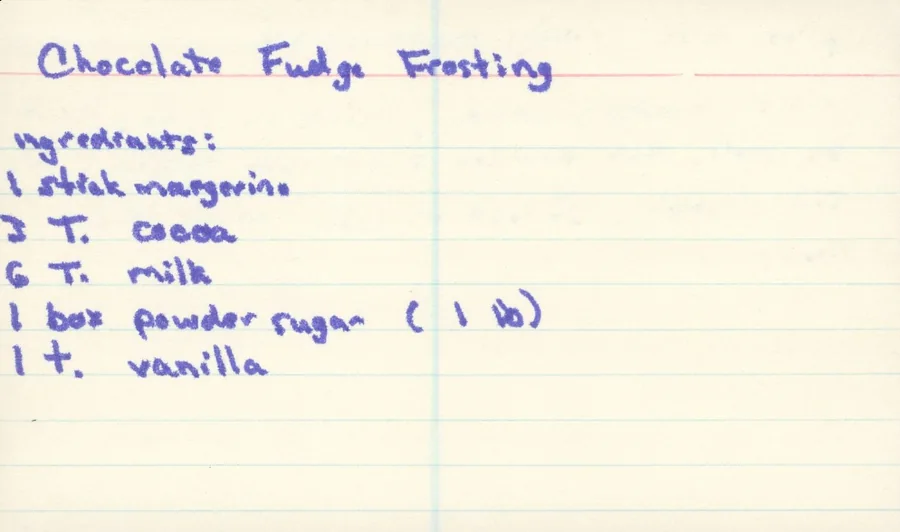 Chocolate Fudge Frosting
ngrediants:
1 stick margerine
3 T. cocoa
6 T. milk
1 box powder sugar ( 1 lb)
1 t. vanilla